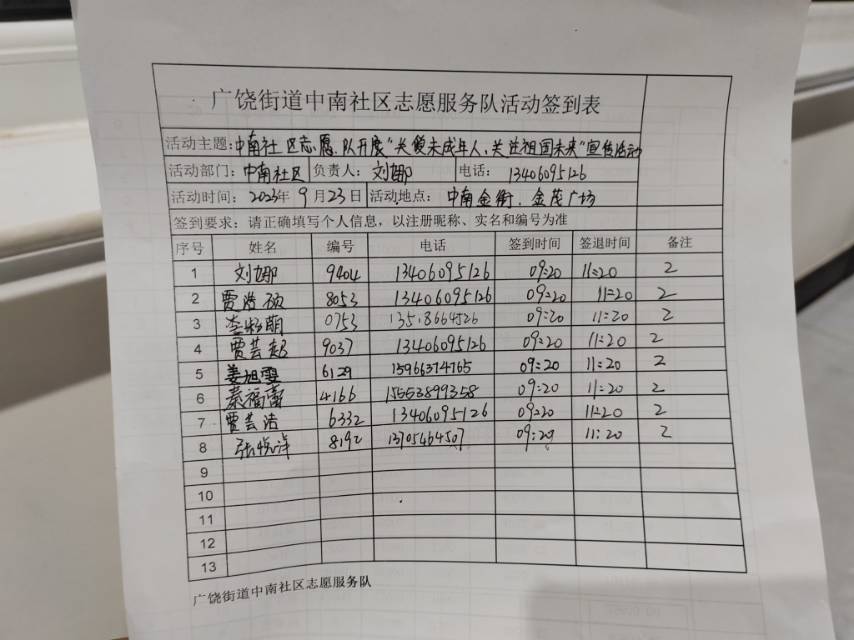 广饶街道中南社区志愿服务队活动签到表
活动主题：中南社区志愿队开展"关爱未成年人、关注祖国未来"宣传活动
活动部门：中南社区 负责人：刘娜 电话：13406095126
活动时间：2023年9月23日 活动地点：中南金街、金茂广场
签到要求：请正确填写个人信息，以注册昵称、实名和编号为准
序号 姓名 编号 电话 签到时间 签退时间 备注
1 刘娜 9404 13406095126 09:20 11:20 2
2 8053 13406095126 09:20 11:20 2
3 0753 09:20 11:20 2
4 贾芸起 9037 13406095126 09:20 11:20 2
5 姜旭雯 6129 15966374765 09:20 11:20 2
6 4166 15553899358 09:20 11:20 2
7 贾芸浩 6332 13406095126 09:20 11:20 2
8 张悦洋 8192 13705464507 09:20 11:20 2
9
10
11
12
13
广饶街道中南社区志愿服务队